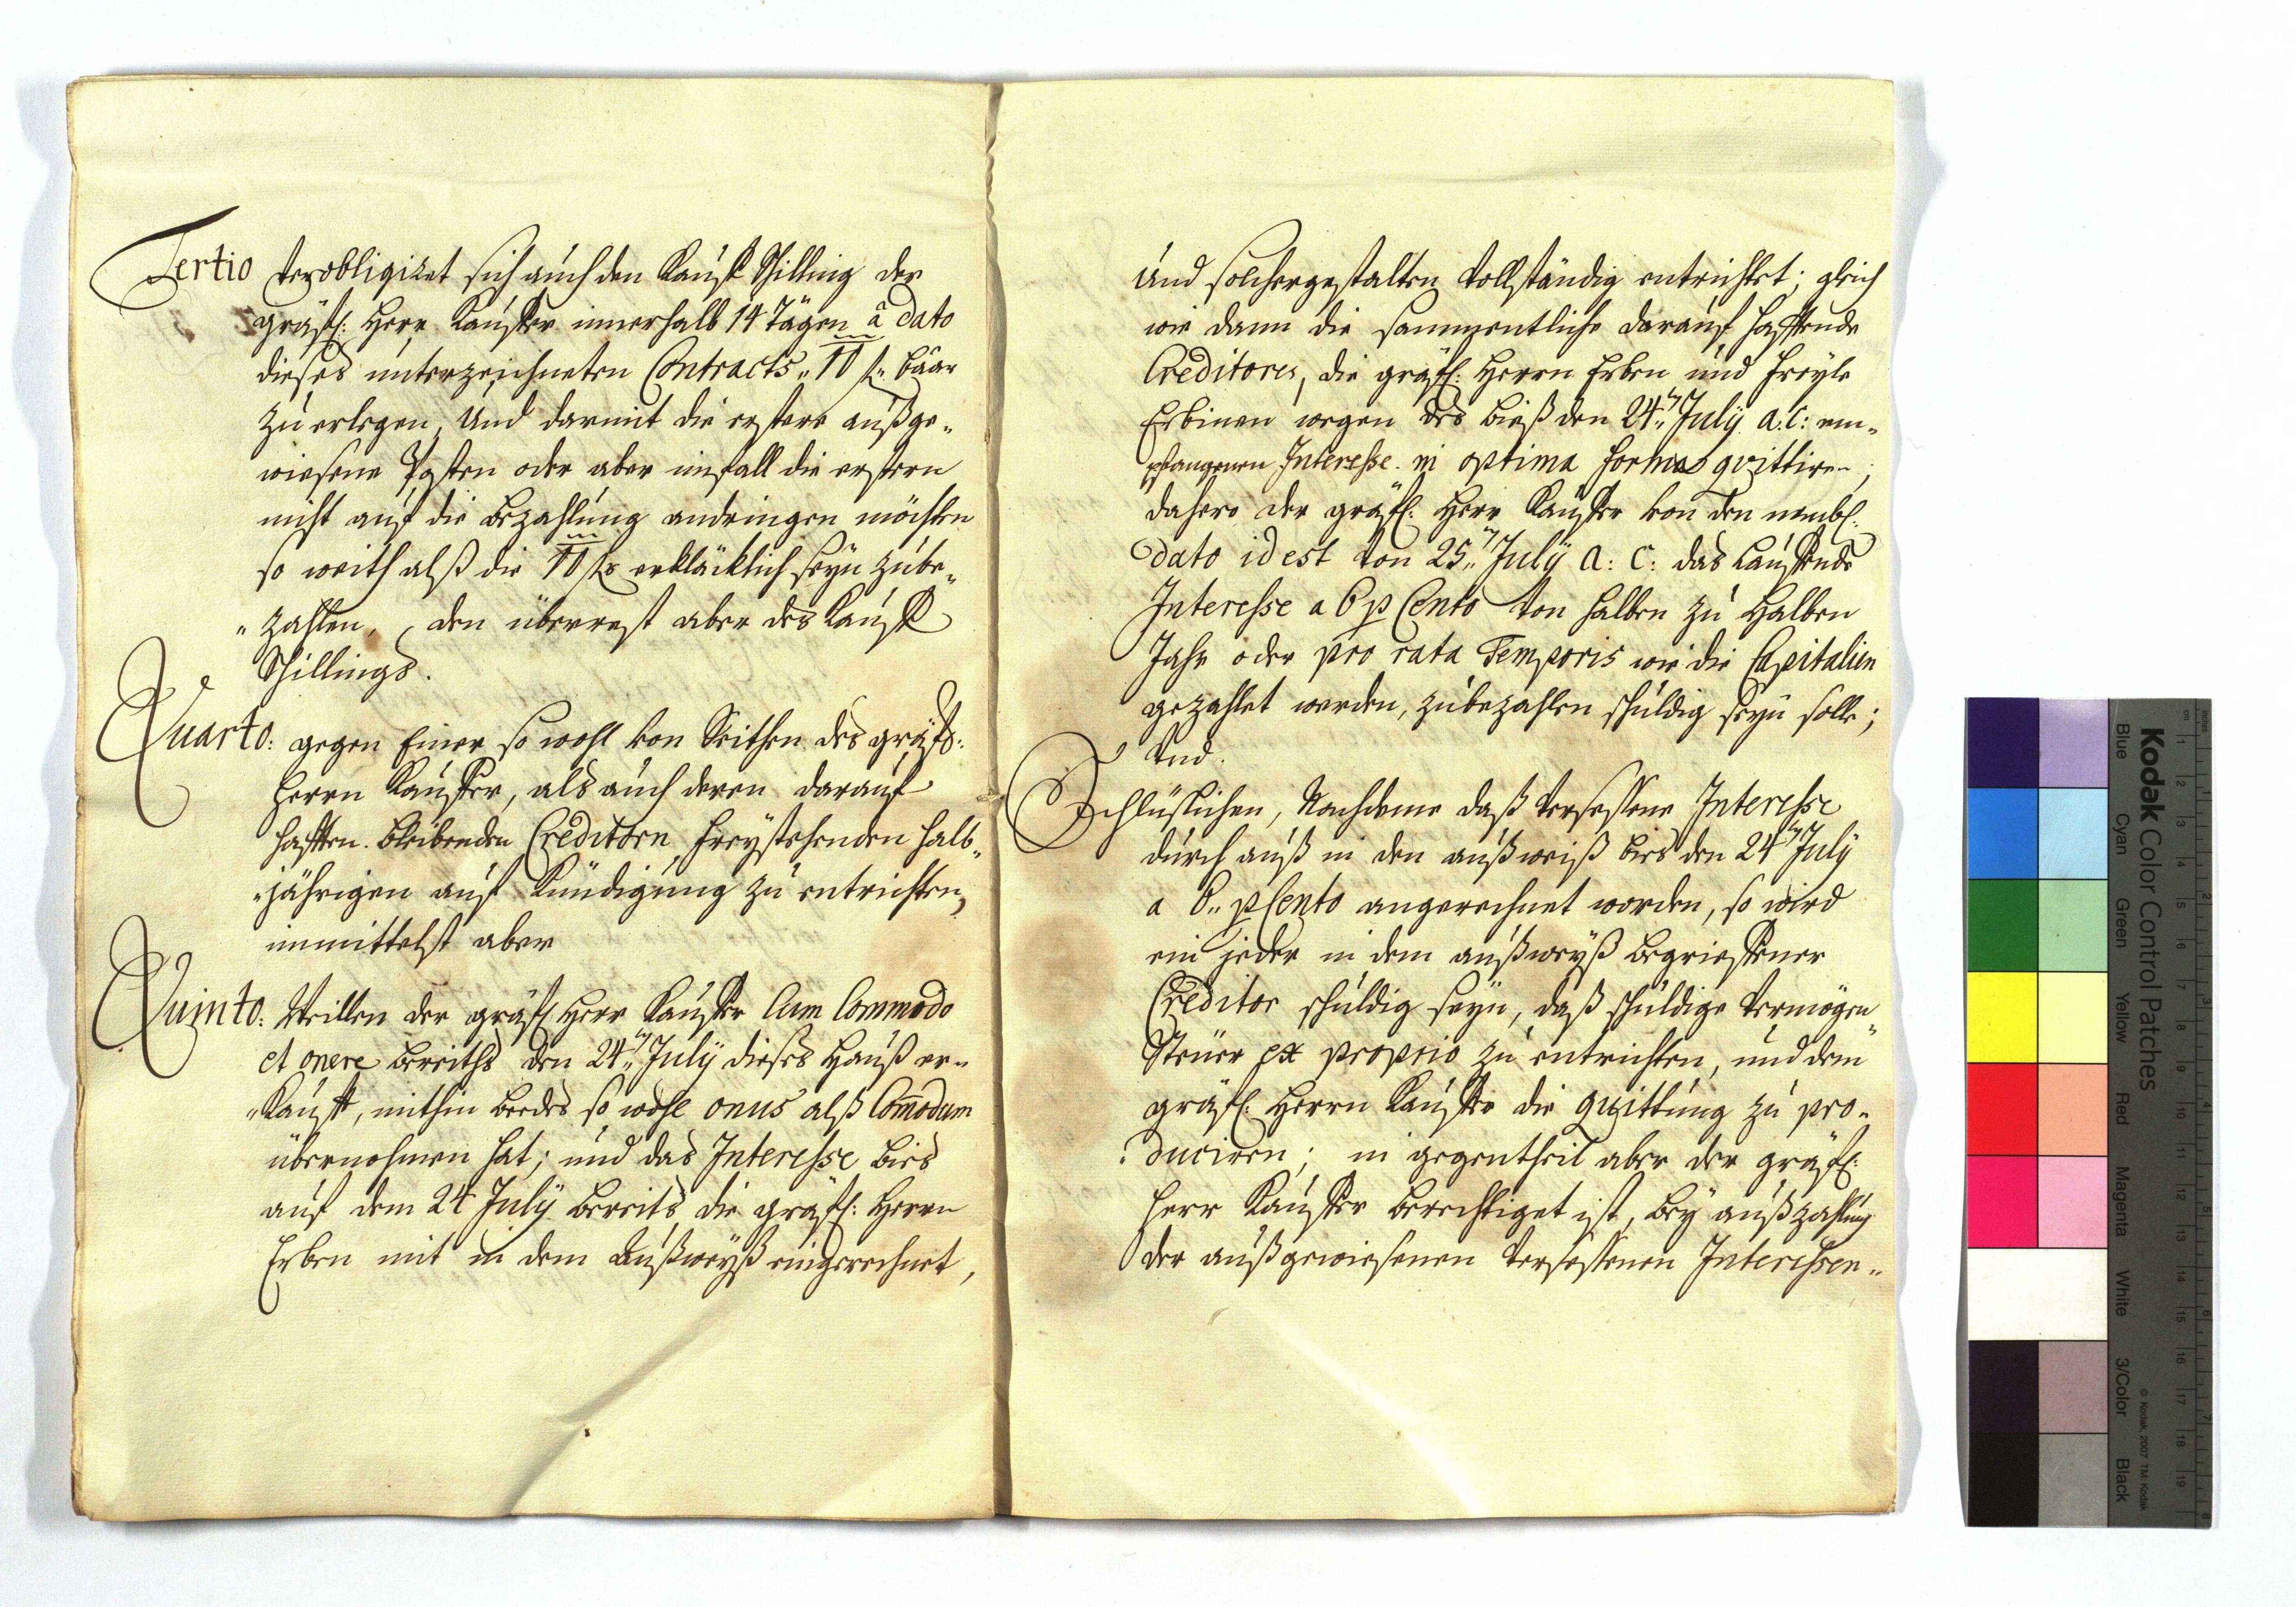 Tertio verobligiret sich auch den Kauf Schilling der
gräfl: Herr Kauffer innerhalb 14 Tagen â dato
dieses unterzeichneten Contracts „ 10 f„ baar
zu erlegen, Und darmit die erstere außge„
wiesene Posten oder aber imfall die erstern
nicht auf die Bezahlung andringen möchten
so weith alß die 10 f erklöcklich seyn zube„
„zahlen, den überrest aber des Kauf
Schillings.
Quarto: gegen Einer so wohl von Seithen des gräfl:
Herrn Kauffer, als auch deren darauf
hafften bleibenden Creditorn freystehenden halb„
„jährigen auf Kündigung zu entrichten,
immittelst aber
Quinto: Weillen der gräfl: Herr Kauffer Cum Commodo
et onere bereiths den 24„ten July dieses Hauß er„
„Kaufft, mithin beedes so wohl onus alß Comodum
übernohmen hat; und das Interesse bies
auf dem 24 July bereits die gräfl: Herrn
Erben mit in dem Außweyß eingerechnet,
Und solchergestalten vollständig entrichtet; gleich
wie dann die sammentliche darauf hafftende
Creditores, die gräfl: Herrn Erben und Freyle
Erbinen wegen des bieß den 24„ten July a: c: em„
pfangenen Interesse in optima forma quittiren;
dahero der gräfl: Herr Kauffer von den nembl:
dato id est von 25„ten July a: c: das Lauffende
Interesse a 6 p Cento von halben zu halben
Jahr oder pro rata Temporis wie die Capitalien
gezahlet werden, zubezahlen schuldig seyn solle;
Und.
Schlüßlichen, Nachdeme daß versessene Interesse
durch auß in den außweiß bies den 24ten July
a 6„ p Cento angerechnet worden, so wird
ein jeder in dem außweyß begrieffener
Creditor schuldig seyn, daß schuldige Vermögen„
Steüer ex proprio zu entrichten, und dem
gräfl: Herrn Kauffer die quittung zu pro„
„duciren; in gegentheil aber der gräfl:
Herr Kauffer berechtiget ist, bey außzahlung
der außgewiesenen versessenen Interessen„
Kodak Color Control Patches
© Kodak, 2007 TM: Kodak
Blue Cyan Green Yellow Red Magenta White 3/Color Black
inches 1 2 3 4 5 6 7 8
cm 1 2 3 4 5 6 7 8 9 10 11 12 13 14 15 16 17 18 19